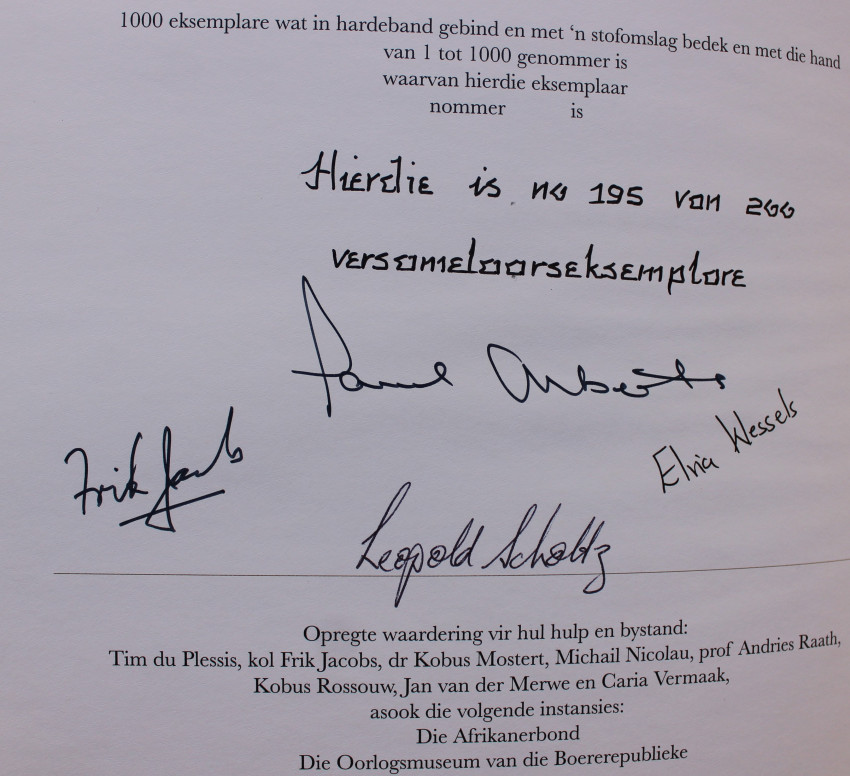 1000 eksemplare wat in hardeband gebind en met ‘n stofomslag bedek en met die hand
van 1 tot 1000 genommer is
waarvan hierdie eksemplaar
nommer is
Hierdie is no 195 van 200
versamelaarseksemplare
Paul Alberts
Frik Jacobs
Elria Wessels
Leopold Scholtz
Opregte waardering vir hul hulp en bystand:
Tim du Plessis, kol Frik Jacobs, dr Kobus Mostert, Michail Nicolau, prof Andries Raath,
Kobus Rossouw, Jan van der Merwe en Caria Vermaak,
asook die volgende instansies:
Die Afrikanerbond
Die Oorlogsmuseum van die Boererepublieke